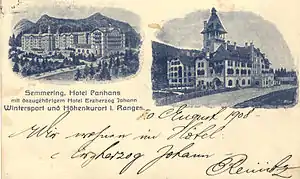 Semmering, Hotel Panhans
mit dazugehörigem Hotel Erzherzog Johann
Wintersport und Höhenkurort I. Ranges.
10 August 1908
Wir wohnen im Hotel
Erzherzog Johann